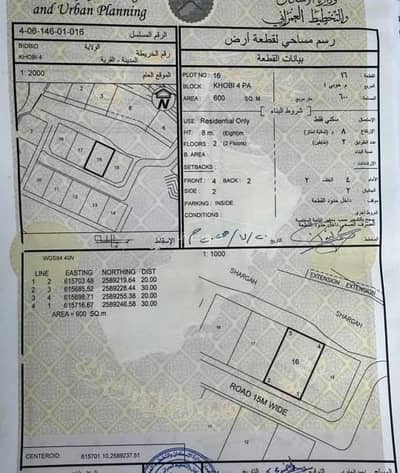 and Urban Planning
والتخطيط العمراني
4-06-146-01-016
الرقم المسلسل
رسم مساحي لقطعة أرض
BIDBID
الولاية
المدينة ، القرية
KHOBI-4
رقم الخريطة
بيانات القطعة
1: 2000
الموقع العام
PLOT NO : 16
١٦
القطعة :
BLOCK : KHOBI 4 PA
AREA : 600 SQ. M.
متر مربع
٦٠٠
شروط البناء
USE : Residential Only
سكني فقط
الاستعمال
HT : 8 m. (Eight)m
٨
الارتفاع
FLOORS : 2 (2 Floors)
٢
عدد الطوابق
B. AREA
SETBACKS :
FRONT : 4 BACK : 2
الخلف : ٢
٤
الأمام
SIDE : 2
٢
PARKING : INSIDE
داخل حدود القطعة
CONDITIONS :
17
16
15
14
WGS84 40N
1: 1000
LINE EASTING NORTHING DIST
1 2 615703.68 2589219.64 20.00
2 3 615685.52 2589228.44 30.00
3 4 615698.71 2589255.38 20.00
4 1 615716.67 2589246.58 30.00
AREA = 600 SQ.m
SHARGAH
EXTENSION EXTENSION
SHARGAH
16
ROAD 15M WIDE
CENTEROID: 615701.10,2589237.51